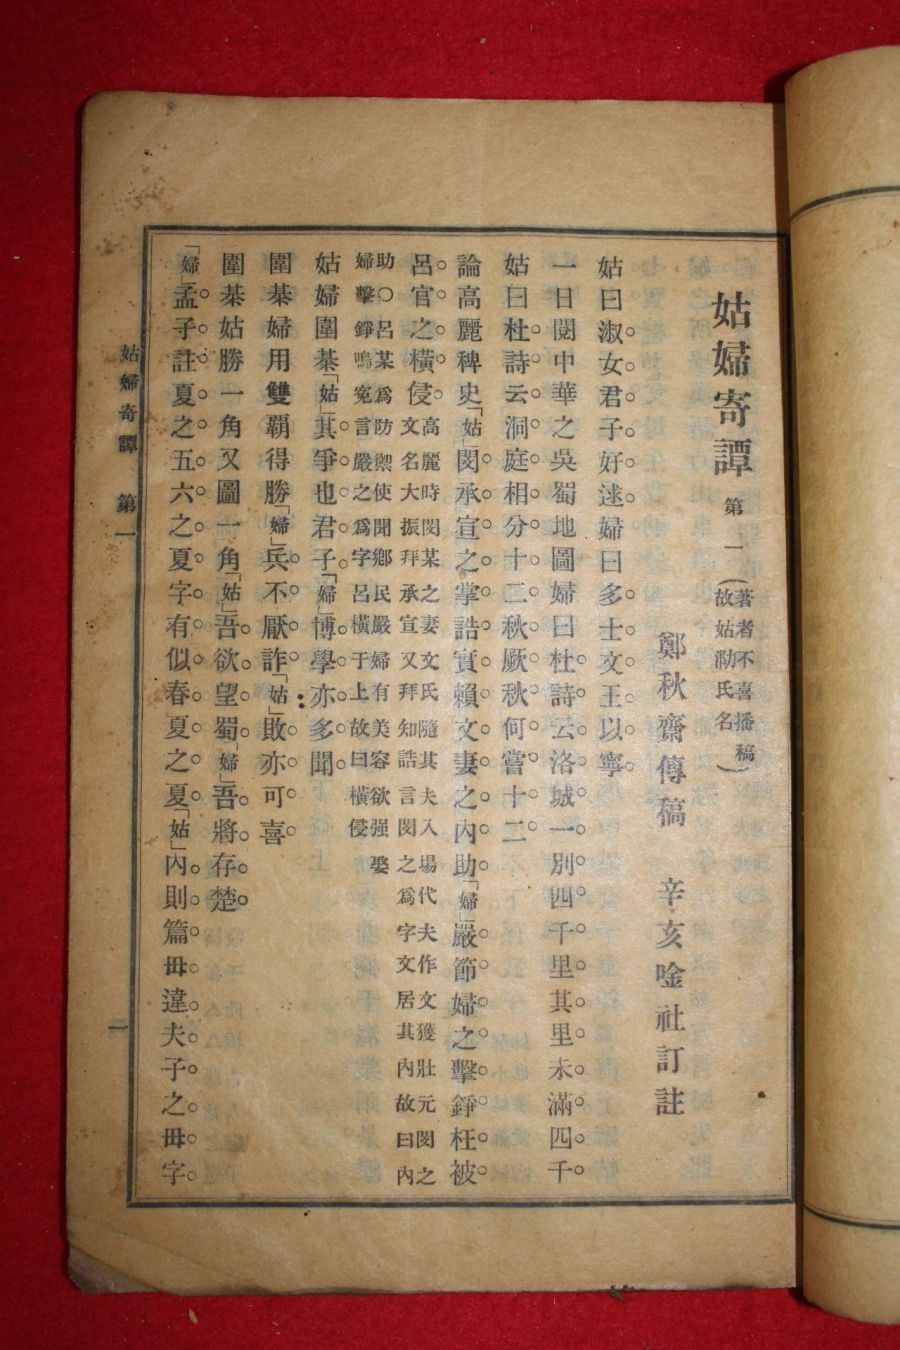 姑婦奇譚 第一 (著者不喜播稿故姑泐氏名)
鄭秋齋傳稿 辛亥唫社訂註
姑曰淑女君子好逑婦曰多士文王以寧
一日閱中華之吳蜀地圖婦曰杜詩云洛城一別四千里其里未滿四千
姑曰杜詩云洞庭相分十二秋厥秋何嘗十二
論高麗稗史「姑」閔承宣之掌誥實賴文妻之內助「婦」嚴節婦之擊錚枉被
呂官之橫侵 高麗時閔某之妻文氏隨其夫入場代夫作文獲壯元閔之文名大振拜承宣又拜知誥言閔之爲字文居其內故曰內
助〇呂某爲防禦使聞鄉民嚴婦有美容欲强娶婦擊錚鳴寃言嚴之爲字呂橫于上故曰橫侵
姑婦圍棊「姑」其爭也君子「婦」博學亦多聞
圍棊婦用雙覇得勝「婦」兵不厭詐「姑」敗亦可喜
圍棊姑勝一角又圖一角「姑」吾欲望蜀「婦」吾將存楚
「婦」孟子註夏之五六之夏字有似春夏之夏「姑」內則篇毋違夫子之毋字
姑婦奇譚 第一 二